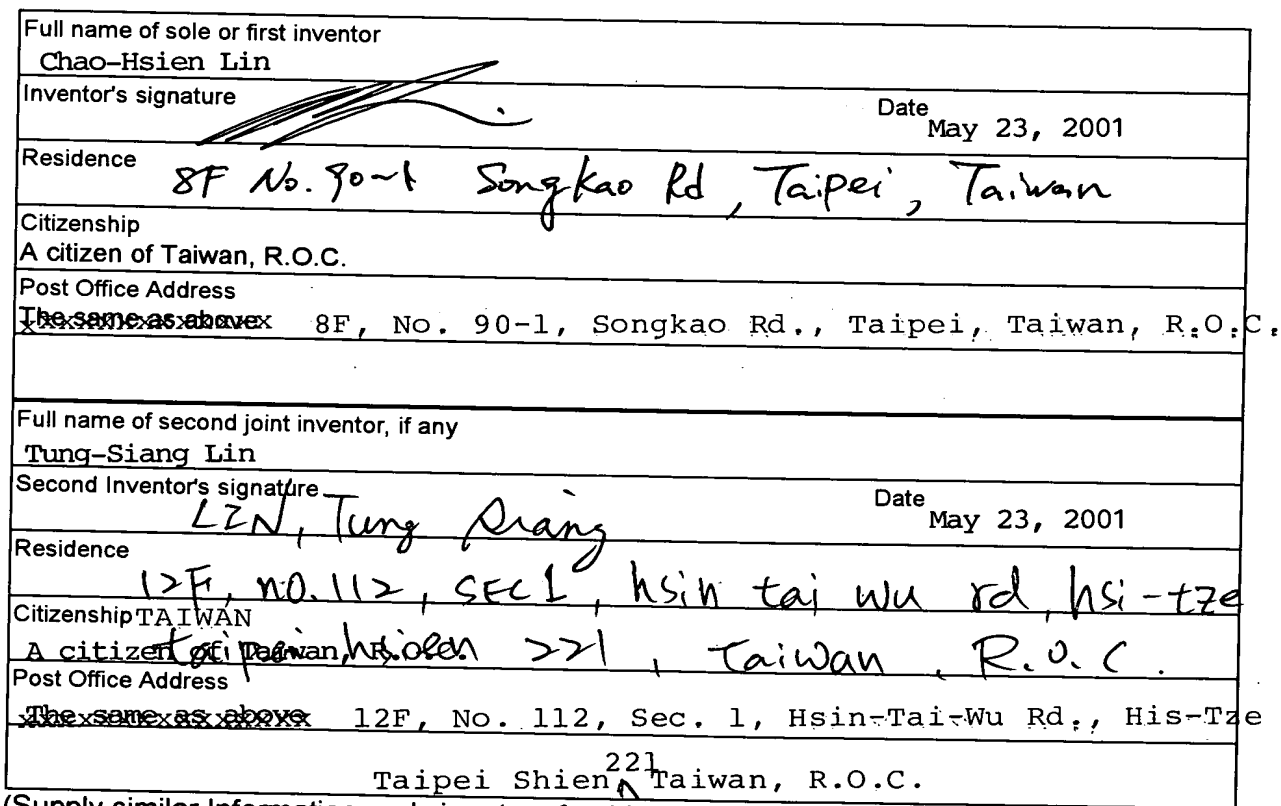 Full name of sole or first inventor
Chao-Hsien Lin
Inventor's signature
Date May 23, 2001
Residence 8F No. 90-1 Songkao Rd, Taipei, Taiwan
Citizenship
A citizen of Taiwan, R.O.C.
Post Office Address
The same as above 8F, No. 90-1, Songkao Rd., Taipei, Taiwan, R.O.C.
Full name of second joint inventor, if any
Tung-Siang Lin
Second Inventor's signature LIN, Tung Siang Date May 23, 2001
Residence
12F, no. 112, SEC 1, hsin tai wu rd, hsi-tze
Citizenship TAIWAN
A citizen of Taiwan, R.O.C.
taipei hsien 221, Taiwan, R.O.C.
Post Office Address
The same as above 12F, No. 112, Sec. 1, Hsin-Tai-Wu Rd., His-Tze
Taipei Shien 221 Taiwan, R.O.C.